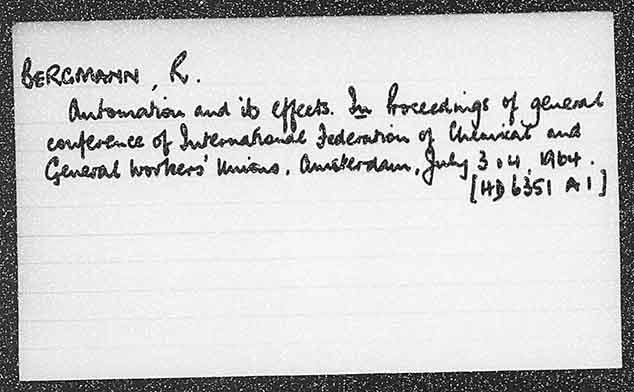 BERGMANN, R.
Automation and its effects. In Proceedings of general
conference of International Federation of Chemical and
General Workers' Unions, Amsterdam, July 3 & 4, 1964.
[HD 6351 A1]